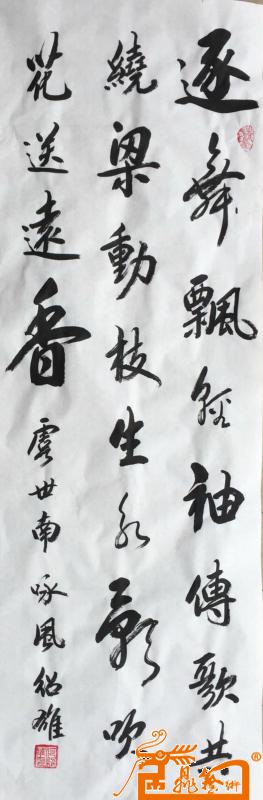 逐舞飄輕袖傳歌共
繞梁動枝生亂影吹
花送遠香虞世南咏風紹雄